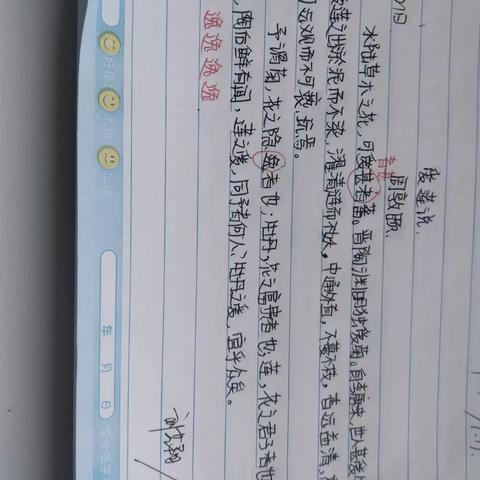 爱莲说.
周敦颐.
水陆草木之花，可爱甚者蕃。晋陶渊明独爱菊。自李唐来，世人甚爱
者甚
莲之出淤泥而不染，濯清涟而不妖，中通外直，不蔓不枝，香远益清，
可远观而不可亵玩焉。
予谓菊，花之隐逸者也；牡丹，花之富贵者也；莲，花之君子者也
陶后鲜有闻，莲之爱，同予者何人？牡丹之爱，宜乎众矣。
逸 逸 逸 逸
年 月 日